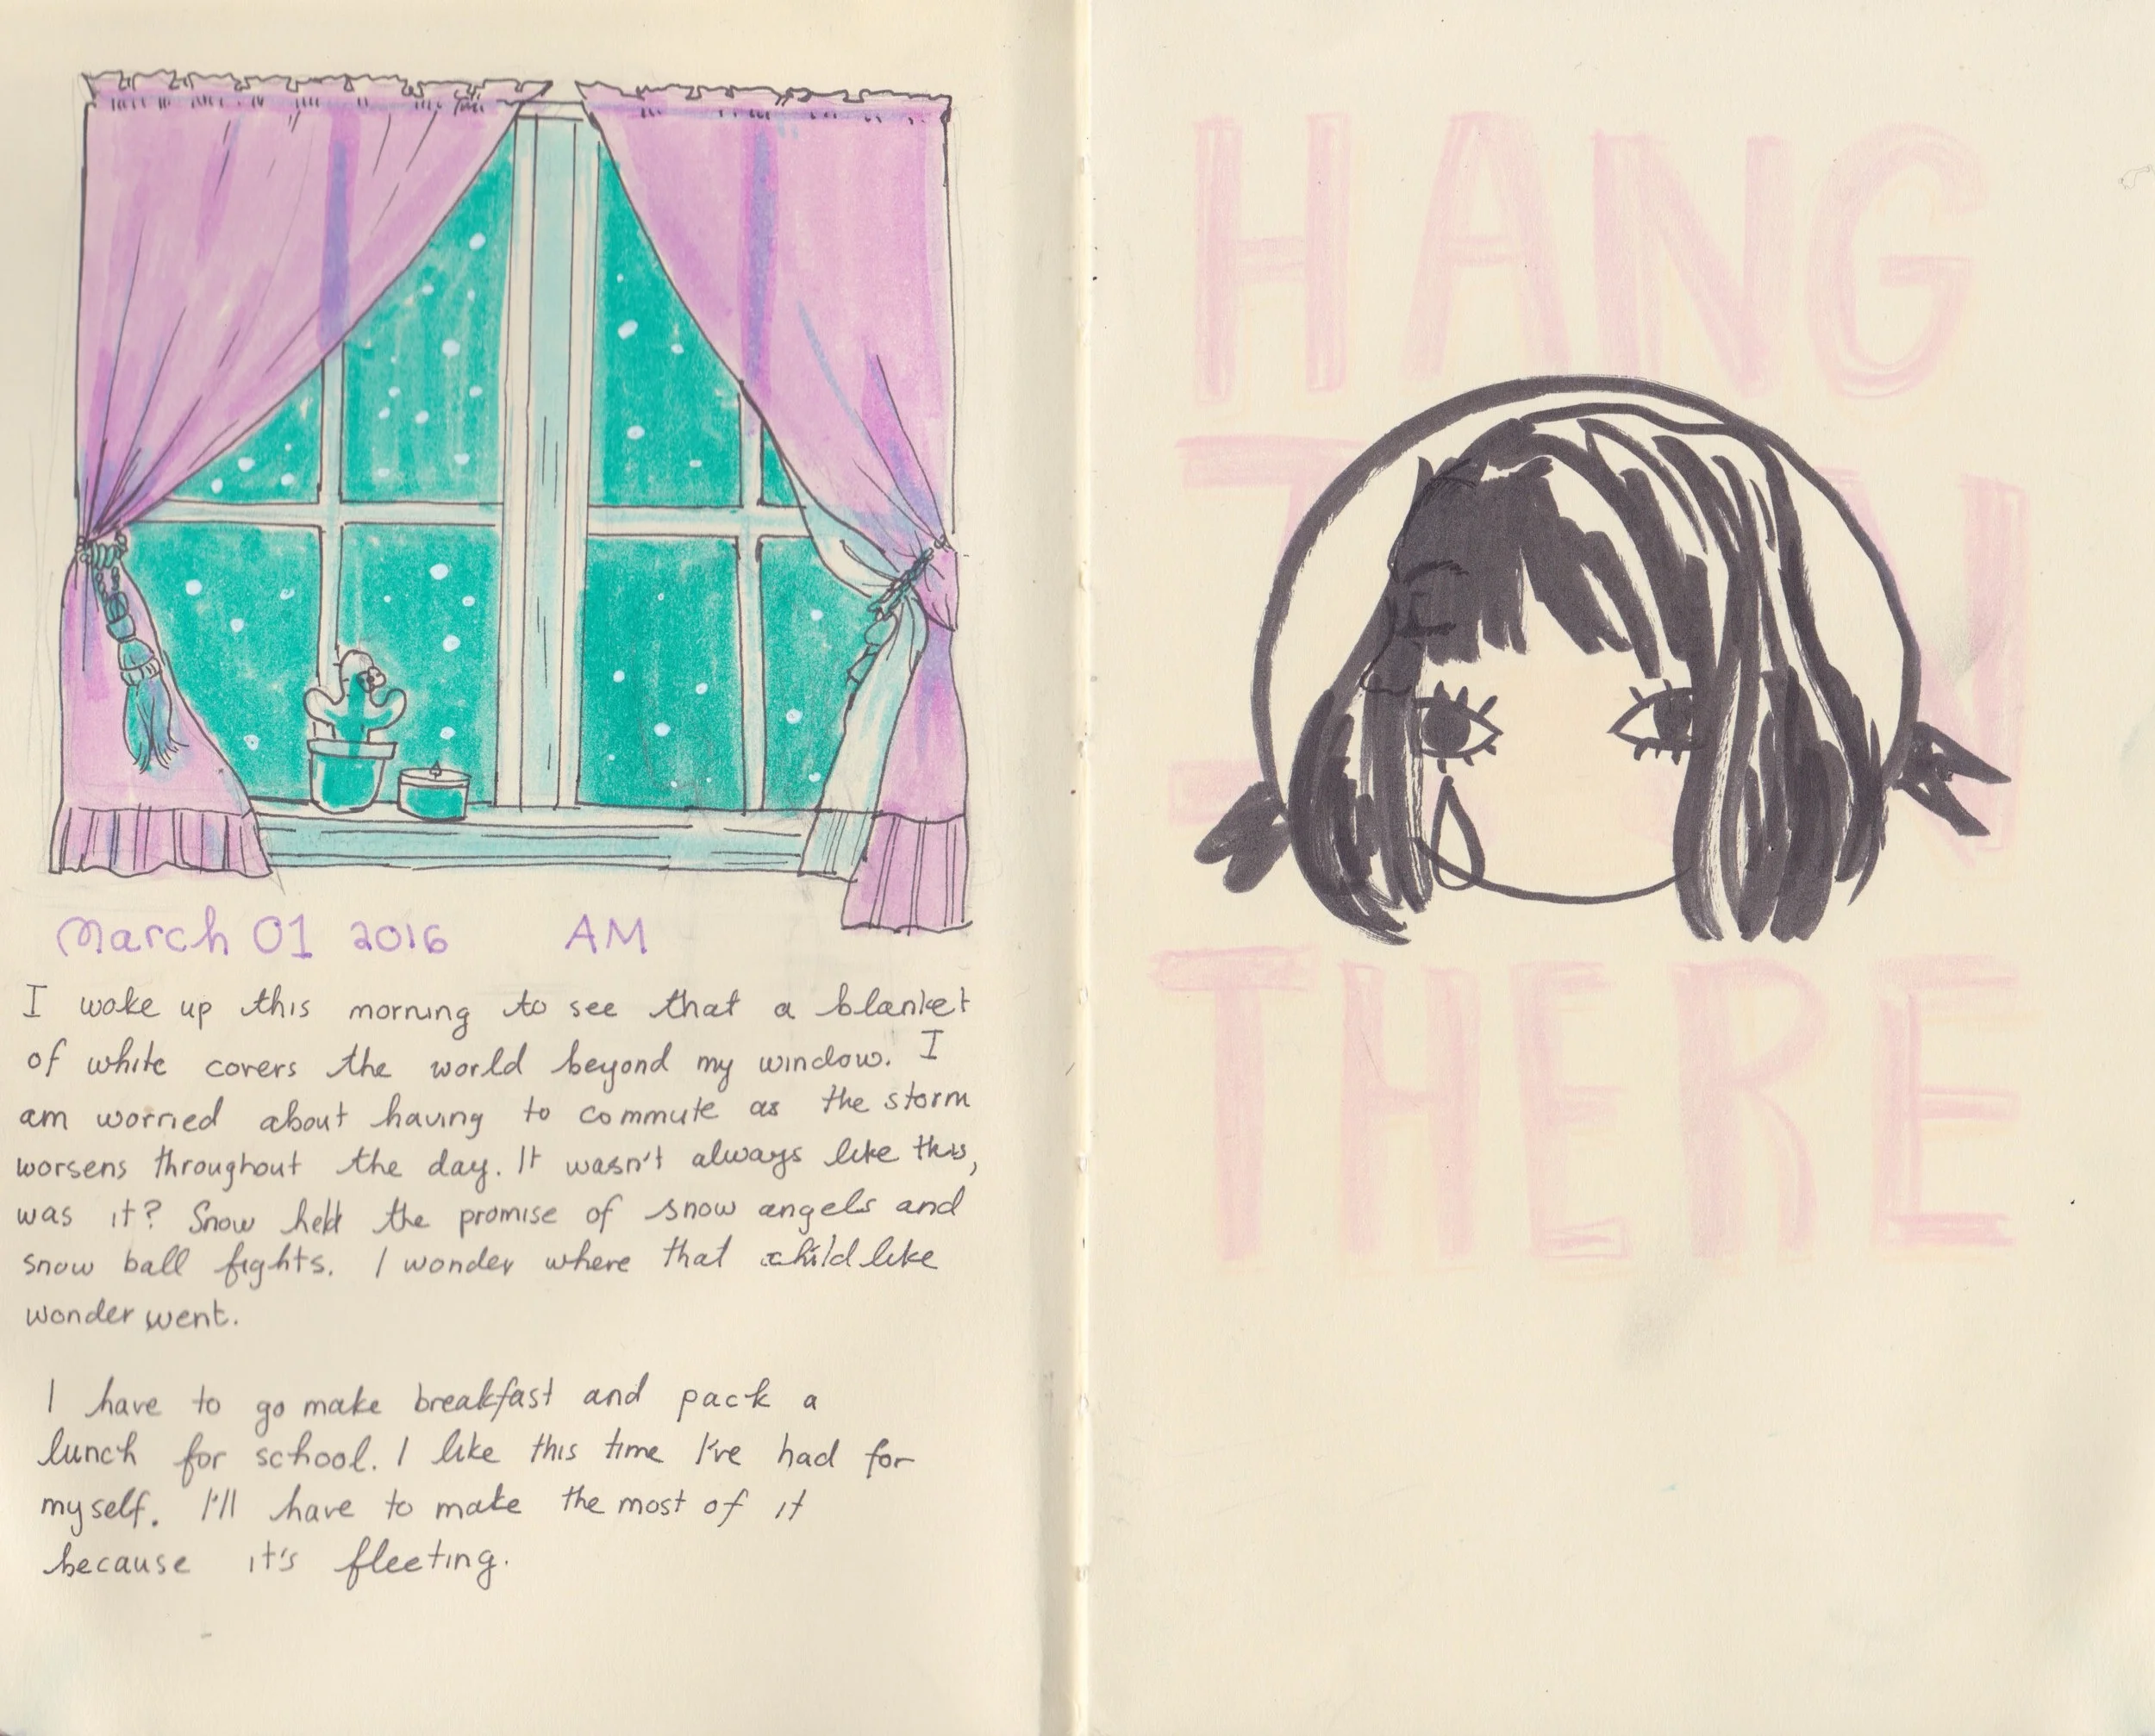 March 01 2016 AM
I woke up this morning to see that a blanket
of white covers the world beyond my window. I
am worried about having to commute as the storm
worsens throughout the day. It wasn't always like this,
was it? Snow held the promise of snow angels and
snow ball fights. I wonder where that childlike
wonder went.
I have to go make breakfast and pack a
lunch for school. I like this time I've had for
myself. I'll have to make the most of it
because it's fleeting.
HANG
IN
THERE